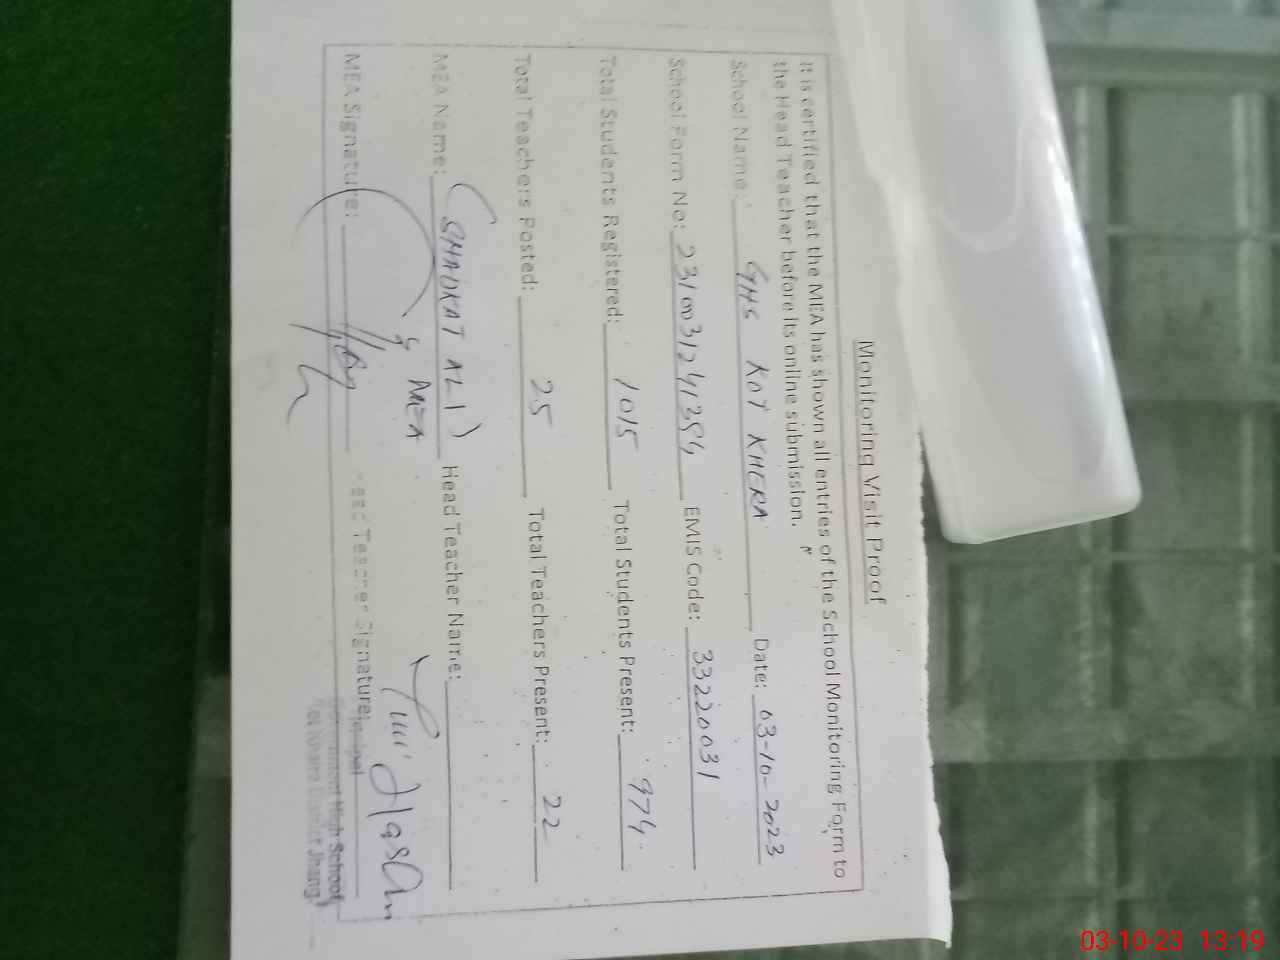 Monitoring Visit Proof
It is certified that the MEA has shown all entries of the School Monitoring Form to
the Head Teacher before its online submission.
School Name: GHS KOT KHERA Date: 03-10-2023
School Form No: EMIS Code: 33220031
Total Students Registered: 1015 Total Students Present: 974
Total Teachers Posted: 25 Total Teachers Present: 22
MEA Name: (SHAUKAT ALI) Head Teacher Name:
MEA
MEA Signature: Head Teacher Signature:
Principal
Government High School
Kot Khera District Jhang
03-10-23 13:19